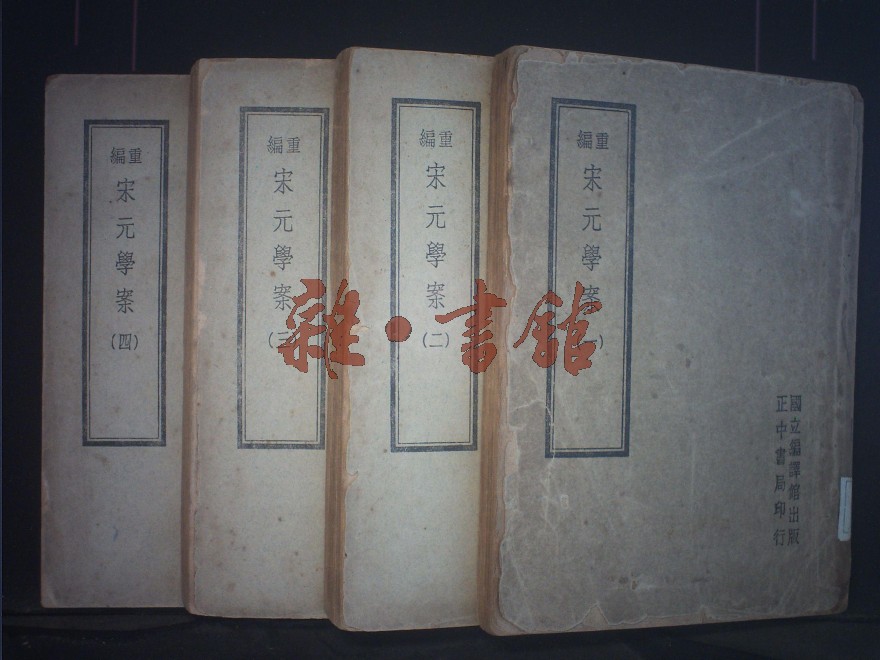 重編
宋元學案
(一)
國立編譯館出版
正中書局印行
重編
宋元學案
(二)
重編
宋元學案
(三)
重編
宋元學案
(四)
雜·書館